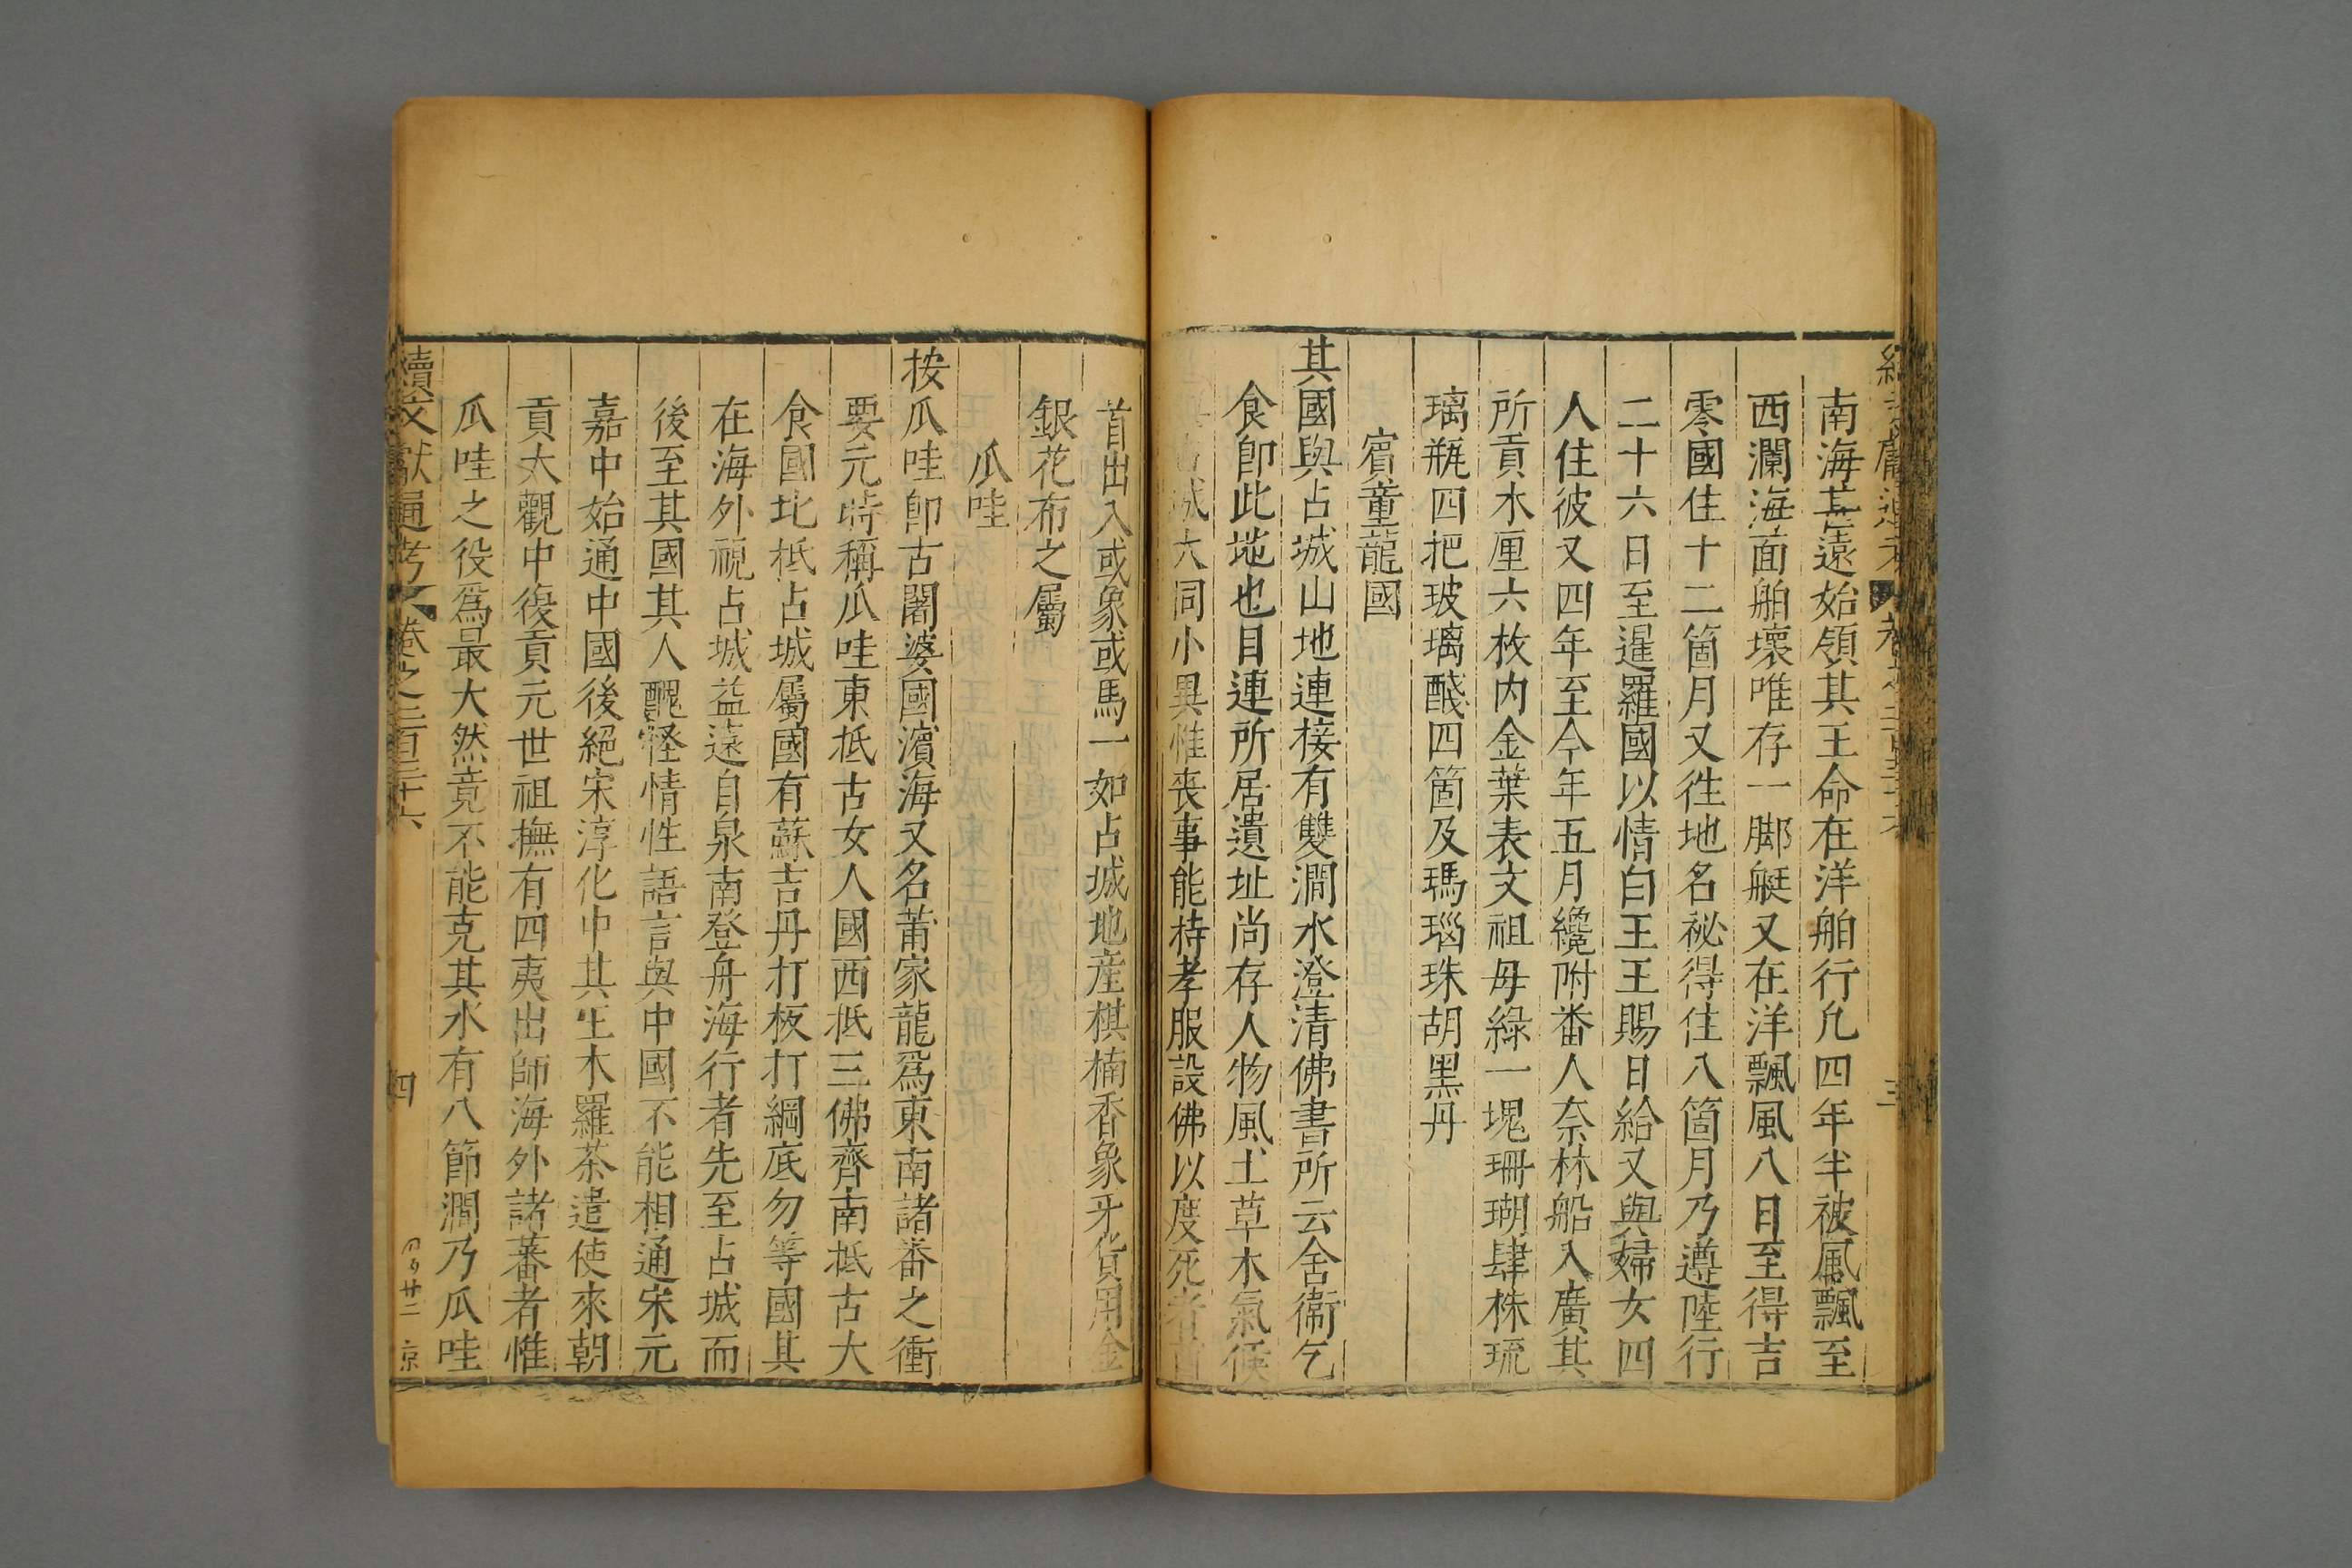 南海甚遠始領其王命在洋舶行凢四年半被風飄至
西瀾海面舶壊唯存一脚艇又在洋飄風八日至得吉
零國住十二箇月又徃地名祕得住八箇月乃遵陸行
二十六日至暹羅國以情白王王賜日給又與婦女四
人住彼又四年至今年五月纔附番人奈林船入廣其
所貢木厘六枚内金葉表文祖母綠一塊珊瑚肆株琉
璃瓶四把玻璃醆四箇及瑪瑙珠胡黑丹
賔童龍國
其國與占城山地連接有雙澗水澄清佛書所云舍衞乞
食卽此地也目連所居遺址尚存人物風土草木氣候
城大同小異惟喪事能持孝服設佛以度死者
首出入或象或馬一如占城地産棋楠香象牙貨用金
銀花布之屬
瓜哇
按瓜哇卽古闍婆國濵海又名莆家龍爲東南諸番之衝
要元時稱瓜哇東抵古女人國西抵三佛齊南抵古大
食國北抵占城屬國有蘇吉丹打板打綱底勿等國其
在海外視占城益遠自泉南登舟海行者先至占城而
後至其國其人醜怪情性語言與中國不能相通宋元
嘉中始通中國後絕宋淳化中其王木羅茶遣使來朝
貢大觀中復貢元世祖撫有四夷出師海外諸蕃者惟
瓜哇之役爲最大然竟不能克其水有八節澗乃瓜哇
續文獻通考 卷之二百三十六 四